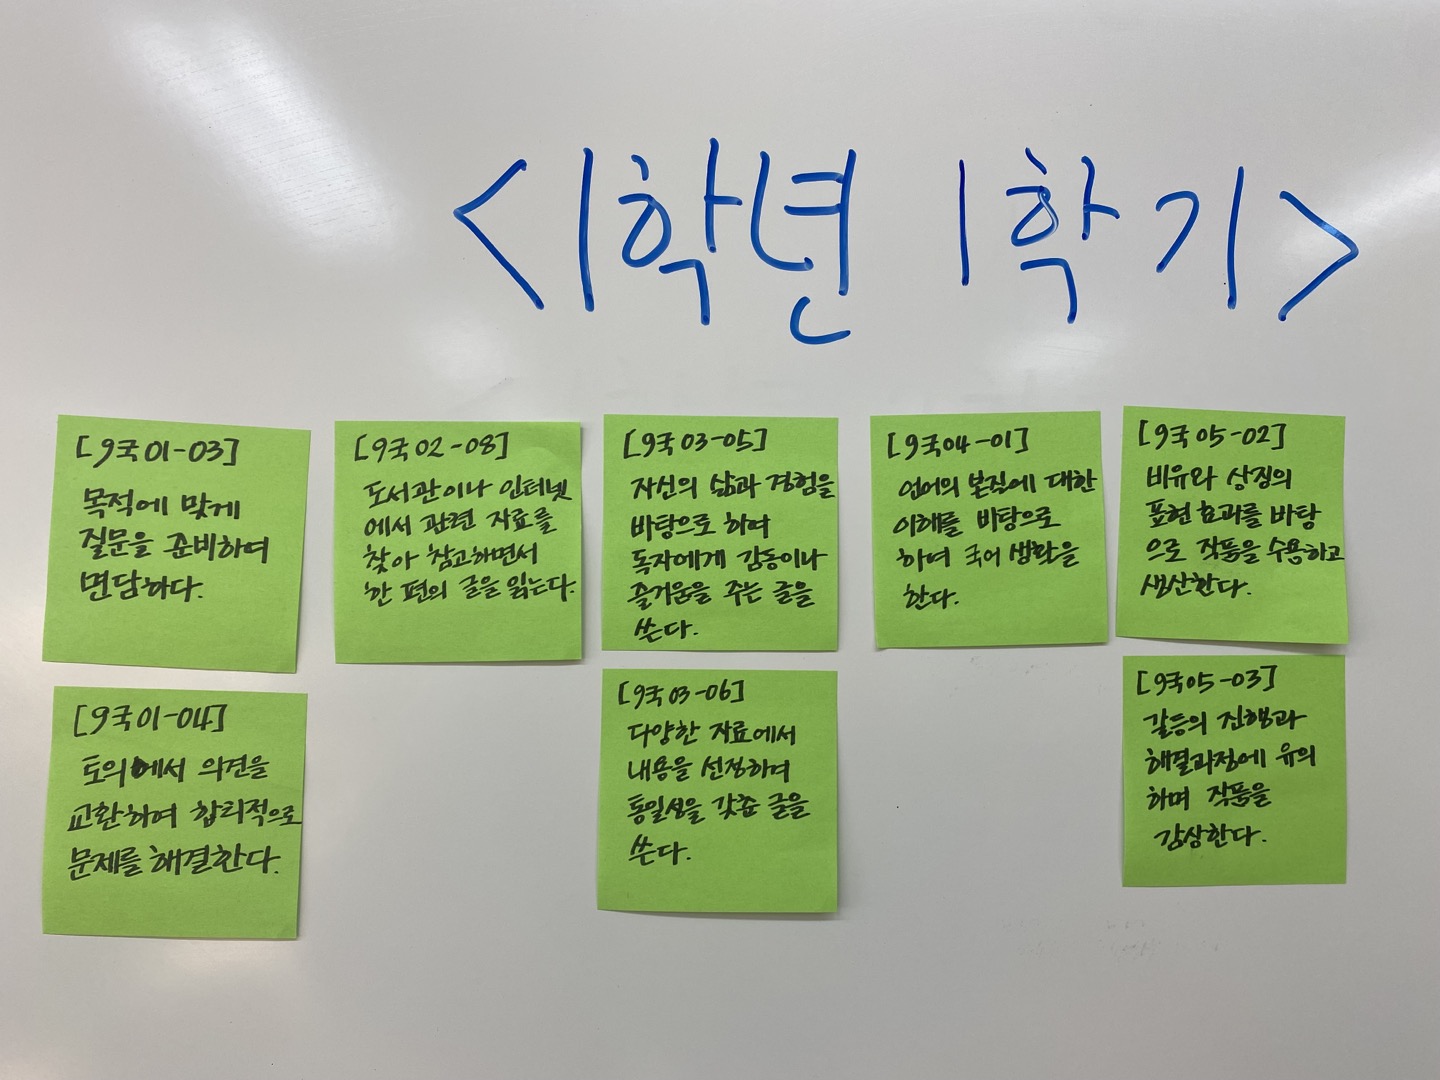 <1학년 1학기>
[9국01-03]
목적에 맞게
질문을 준비하며
면담하다.
[9국02-08]
도서관이나 인터넷
에서 관련 자료를
찾아 참고하면서
한 편의 글을 읽는다.
[9국03-05]
자신의 삶과 경험을
바탕으로 하여
독자에게 감동이나
즐거움을 주는 글을
쓴다.
[9국04-01]
언어의 본질에 대한
이해를 바탕으로
하여 국어 생활을
한다.
[9국05-02]
비유와 상징의
표현 효과를 바탕
으로 작품을 수용하고
생산한다.
[9국01-04]
토의에서 의견을
교환하여 합리적으로
문제를 해결한다.
[9국03-06]
다양한 자료에서
내용을 선정하여
통일성을 갖춘 글을
쓴다.
[9국05-03]
갈등의 진행과
해결과정에 유의
하며 작품을
감상한다.